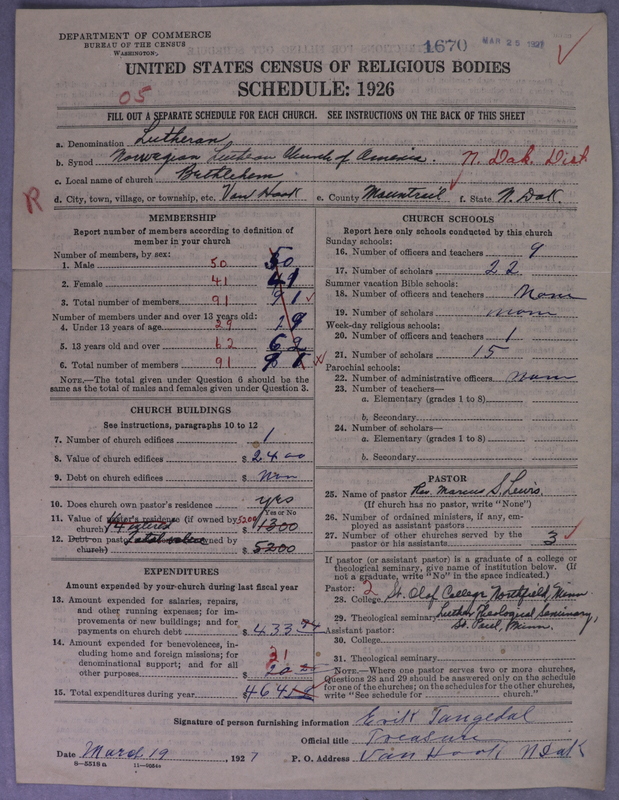 DEPARTMENT OF COMMERCE
BUREAU OF THE CENSUS
WASHINGTON
1670
MAR 25 1927
UNITED STATES CENSUS OF RELIGIOUS BODIES
SCHEDULE: 1926
05
FILL OUT A SEPARATE SCHEDULE FOR EACH CHURCH. SEE INSTRUCTIONS ON THE BACK OF THIS SHEET
a. Denomination Lutheran
b. Synod Norwegian Lutheran Church of America. N. Dak. Dist.
c. Local name of church Bethlehem
d. City, town, village, or township, etc. Van Hook e. County Mountrail f. State N. Dak.
R
MEMBERSHIP
Report number of members according to definition of
member in your church
Number of members, by sex:
1. Male 50 50
2. Female 41 41
3. Total number of members 91 91
Number of members under and over 13 years old:
4. Under 13 years of age 29 29
5. 13 years old and over 62 62
6. Total number of members 91
NOTE.—The total given under Question 6 should be the
same as the total of males and females given under Question 3.
CHURCH BUILDINGS
See instructions, paragraphs 10 to 12
7. Number of church edifices 1
8. Value of church edifices $ 2400
9. Debt on church edifices $
10. Does church own pastor's residence yes
Yes or No
11. Value of pastor's residence (if owned by 5200
church) $ 1300
12. Debt on pastor's residence (if owned by
church) Total value $ 5200
EXPENDITURES
Amount expended by your church during last fiscal year
13. Amount expended for salaries, repairs,
and other running expenses; for im-
provements or new buildings; and for
payments on church debt $ 433
14. Amount expended for benevolences, in-
cluding home and foreign missions; for
denominational support; and for all
other purposes $ 21
15. Total expenditures during year
CHURCH SCHOOLS
Report here only schools conducted by this church
Sunday schools:
16. Number of officers and teachers 9
17. Number of scholars 22
Summer vacation Bible schools:
18. Number of officers and teachers None
19. Number of scholars none
Week-day religious schools:
20. Number of officers and teachers 1
21. Number of scholars 15
Parochial schools:
22. Number of administrative officers none
23. Number of teachers—
a. Elementary (grades 1 to 8)
b. Secondary
24. Number of scholars—
a. Elementary (grades 1 to 8)
b. Secondary
PASTOR
25. Name of pastor Rev. Marcus S. Lewis.
(If church has no pastor, write "None")
26. Number of ordained ministers, if any, em-
ployed as assistant pastors
27. Number of other churches served by the
pastor or his assistant 3
If pastor (or assistant pastor) is a graduate of a college or
theological seminary, give name of institution below. (If
not a graduate, write "No" in the space indicated.)
Pastor: 2
28. College St. Olaf College Northfield, Minn
29. Theological seminary Luther Theological Seminary,
St. Paul, Minn.
Assistant pastor:
30. College
31. Theological seminary
NOTE.—Where one pastor serves two or more churches,
Questions 28 and 29 should be answered only on the schedule
for one of the churches; on the schedules for the other churches,
write "See schedule for church."
Signature of person furnishing information Erik Tangedal
Official title Treasure
Date March 19, 1927 P. O. Address Van Hook N Dak
8—5518a 11—9084